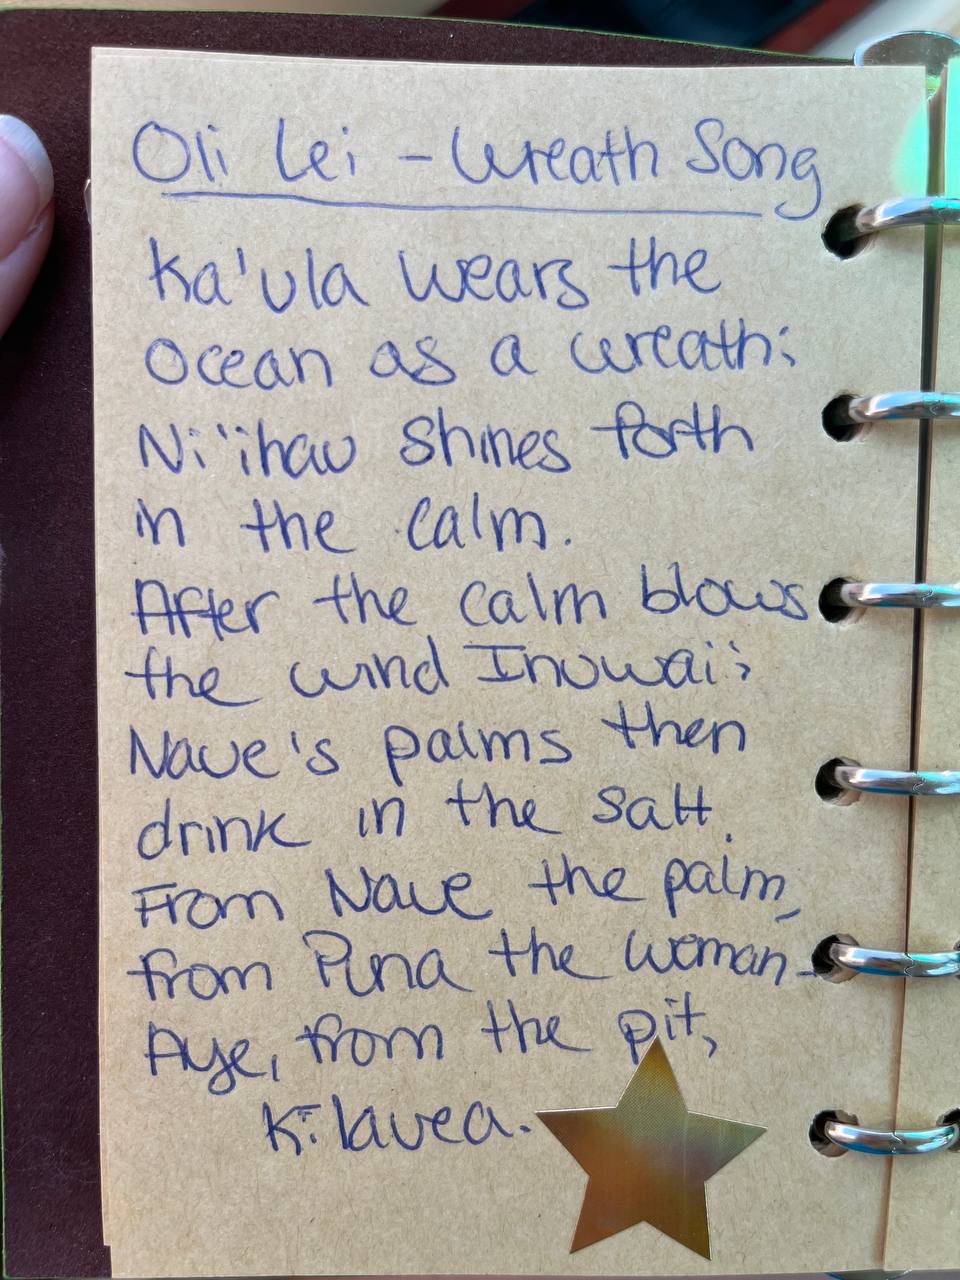 Oli Lei - Wreath Song
Ka'ula wears the
ocean as a wreath;
Ni'ihau shines forth
in the calm.
After the calm blows
the wind Inuwai;
Naue's palms then
drink in the salt.
From Naue the palm,
from Puna the woman-
Aye, from the pit,
Kīlauea.